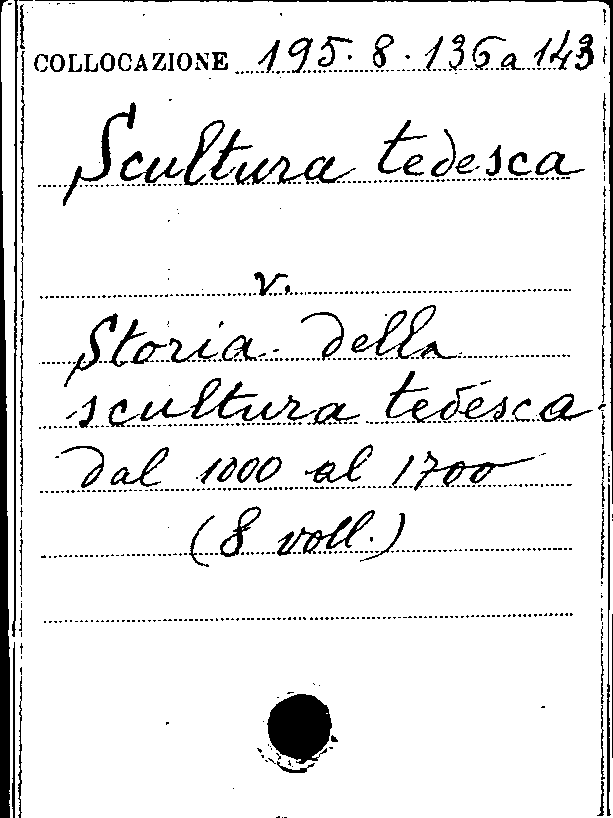 COLLOCAZIONE 195.8.136 a 143
Scultura tedesca
v.
Storia della
scultura tedesca
dal 1000 al 1700
(8 voll.)